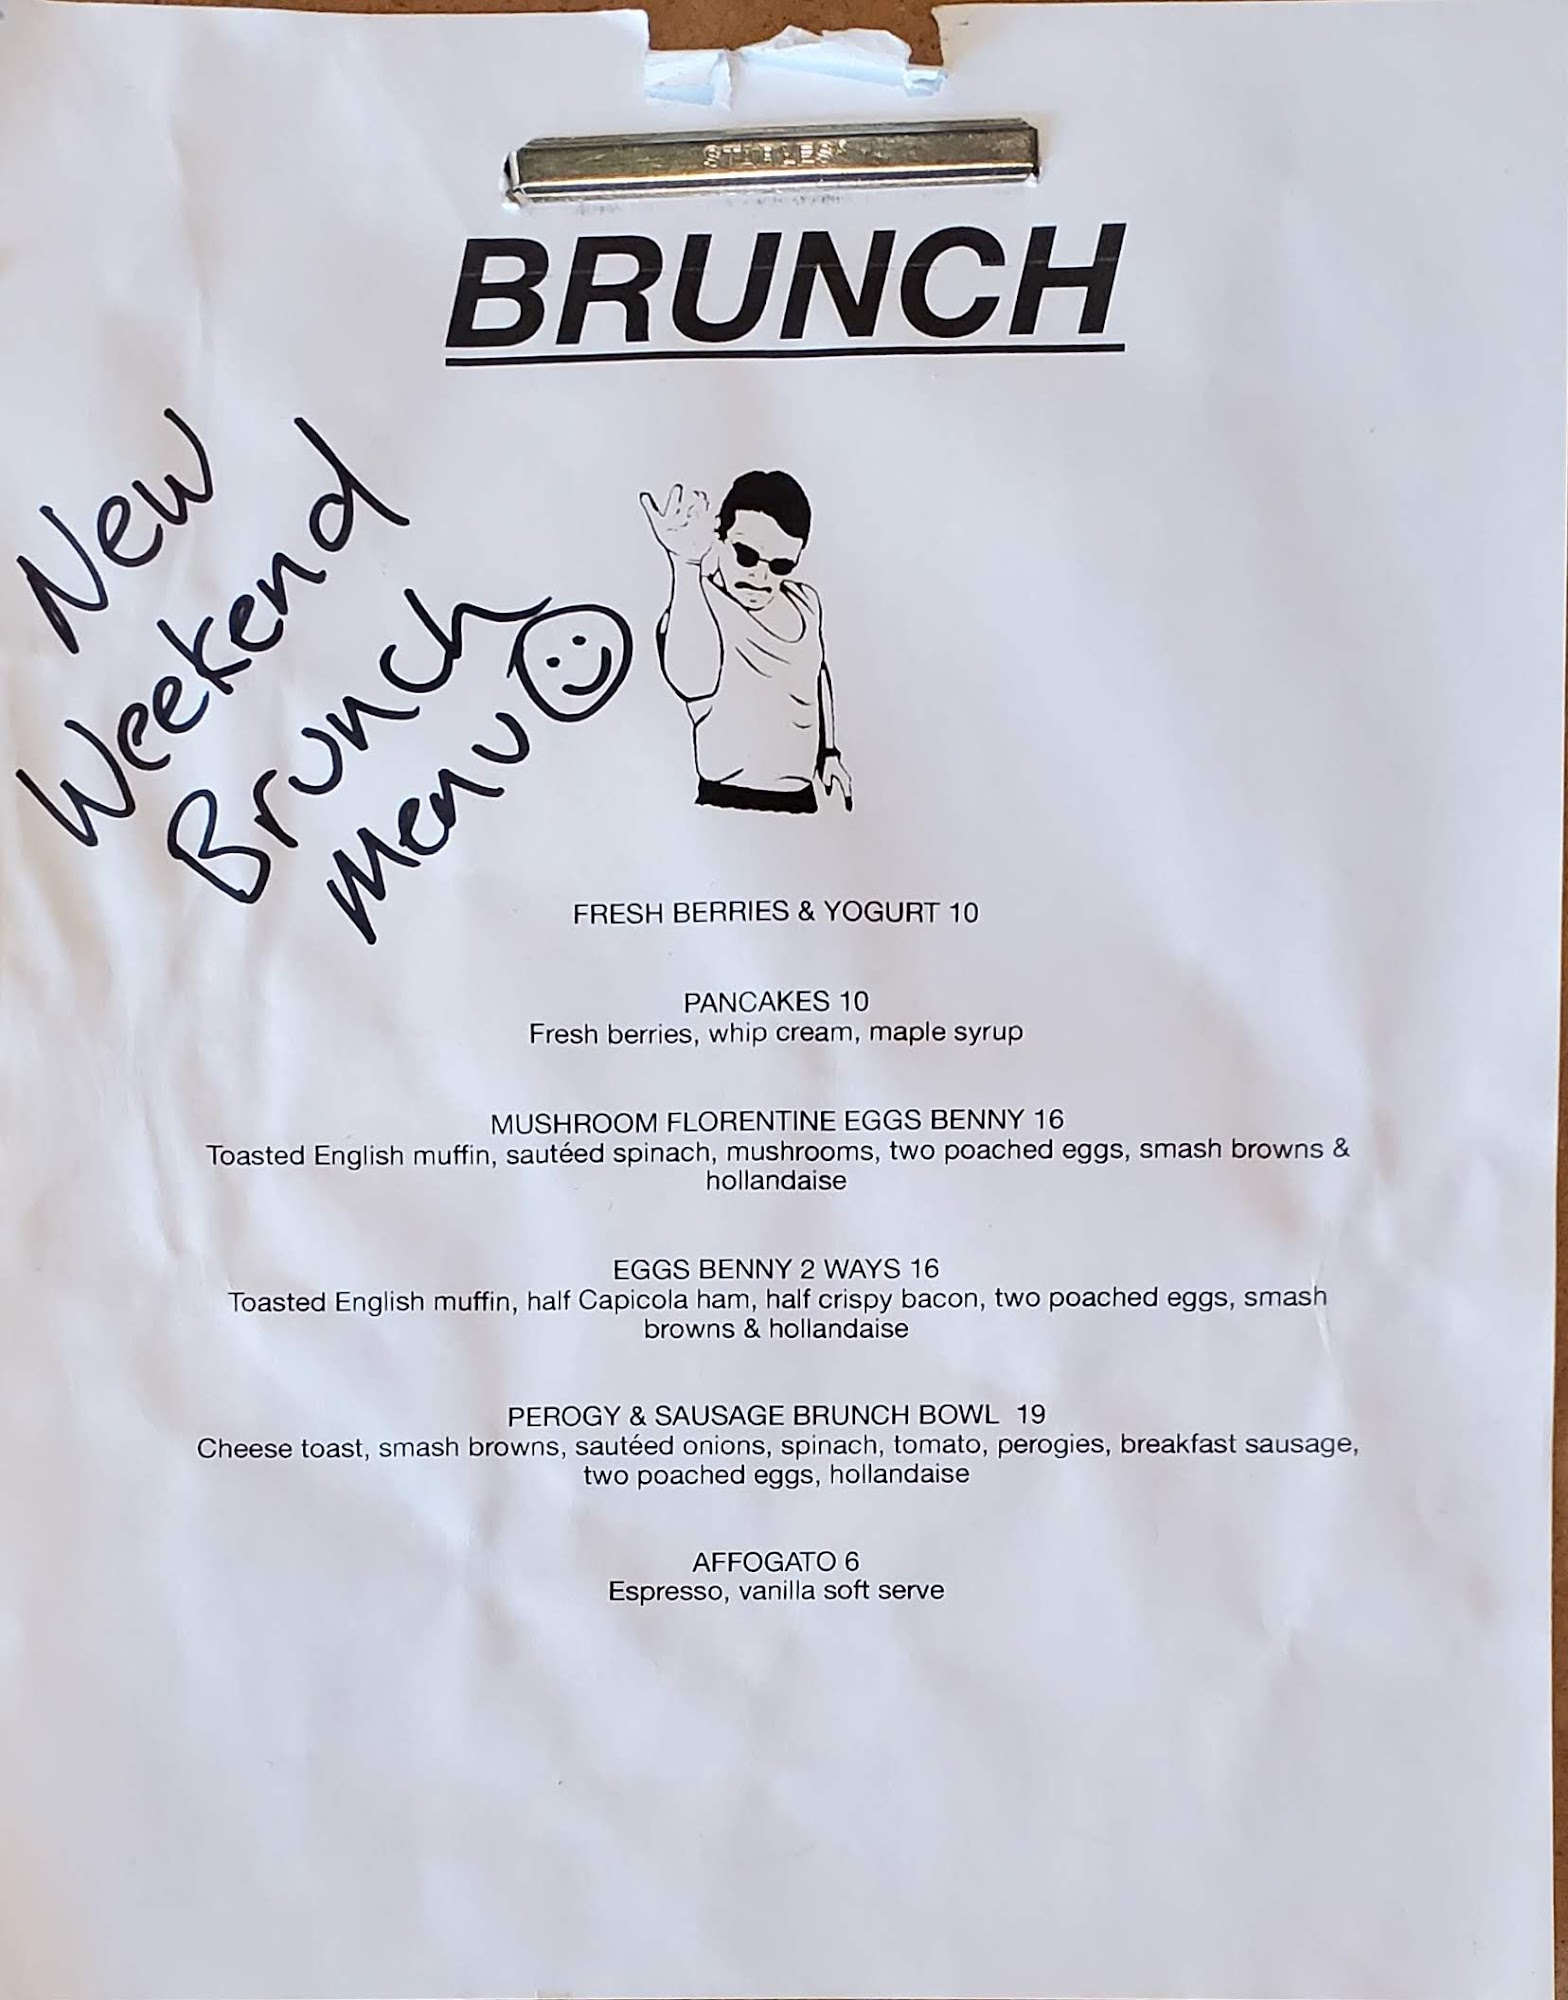 STAPLES
BRUNCH
New
Weekend
Brunch
Menu
FRESH BERRIES & YOGURT 10
PANCAKES 10
Fresh berries, whip cream, maple syrup
MUSHROOM FLORENTINE EGGS BENNY 16
Toasted English muffin, sautéed spinach, mushrooms, two poached eggs, smash browns &
hollandaise
EGGS BENNY 2 WAYS 16
Toasted English muffin, half Capicola ham, half crispy bacon, two poached eggs, smash
browns & hollandaise
PEROGY & SAUSAGE BRUNCH BOWL 19
Cheese toast, smash browns, sautéed onions, spinach, tomato, perogies, breakfast sausage,
two poached eggs, hollandaise
AFFOGATO 6
Espresso, vanilla soft serve